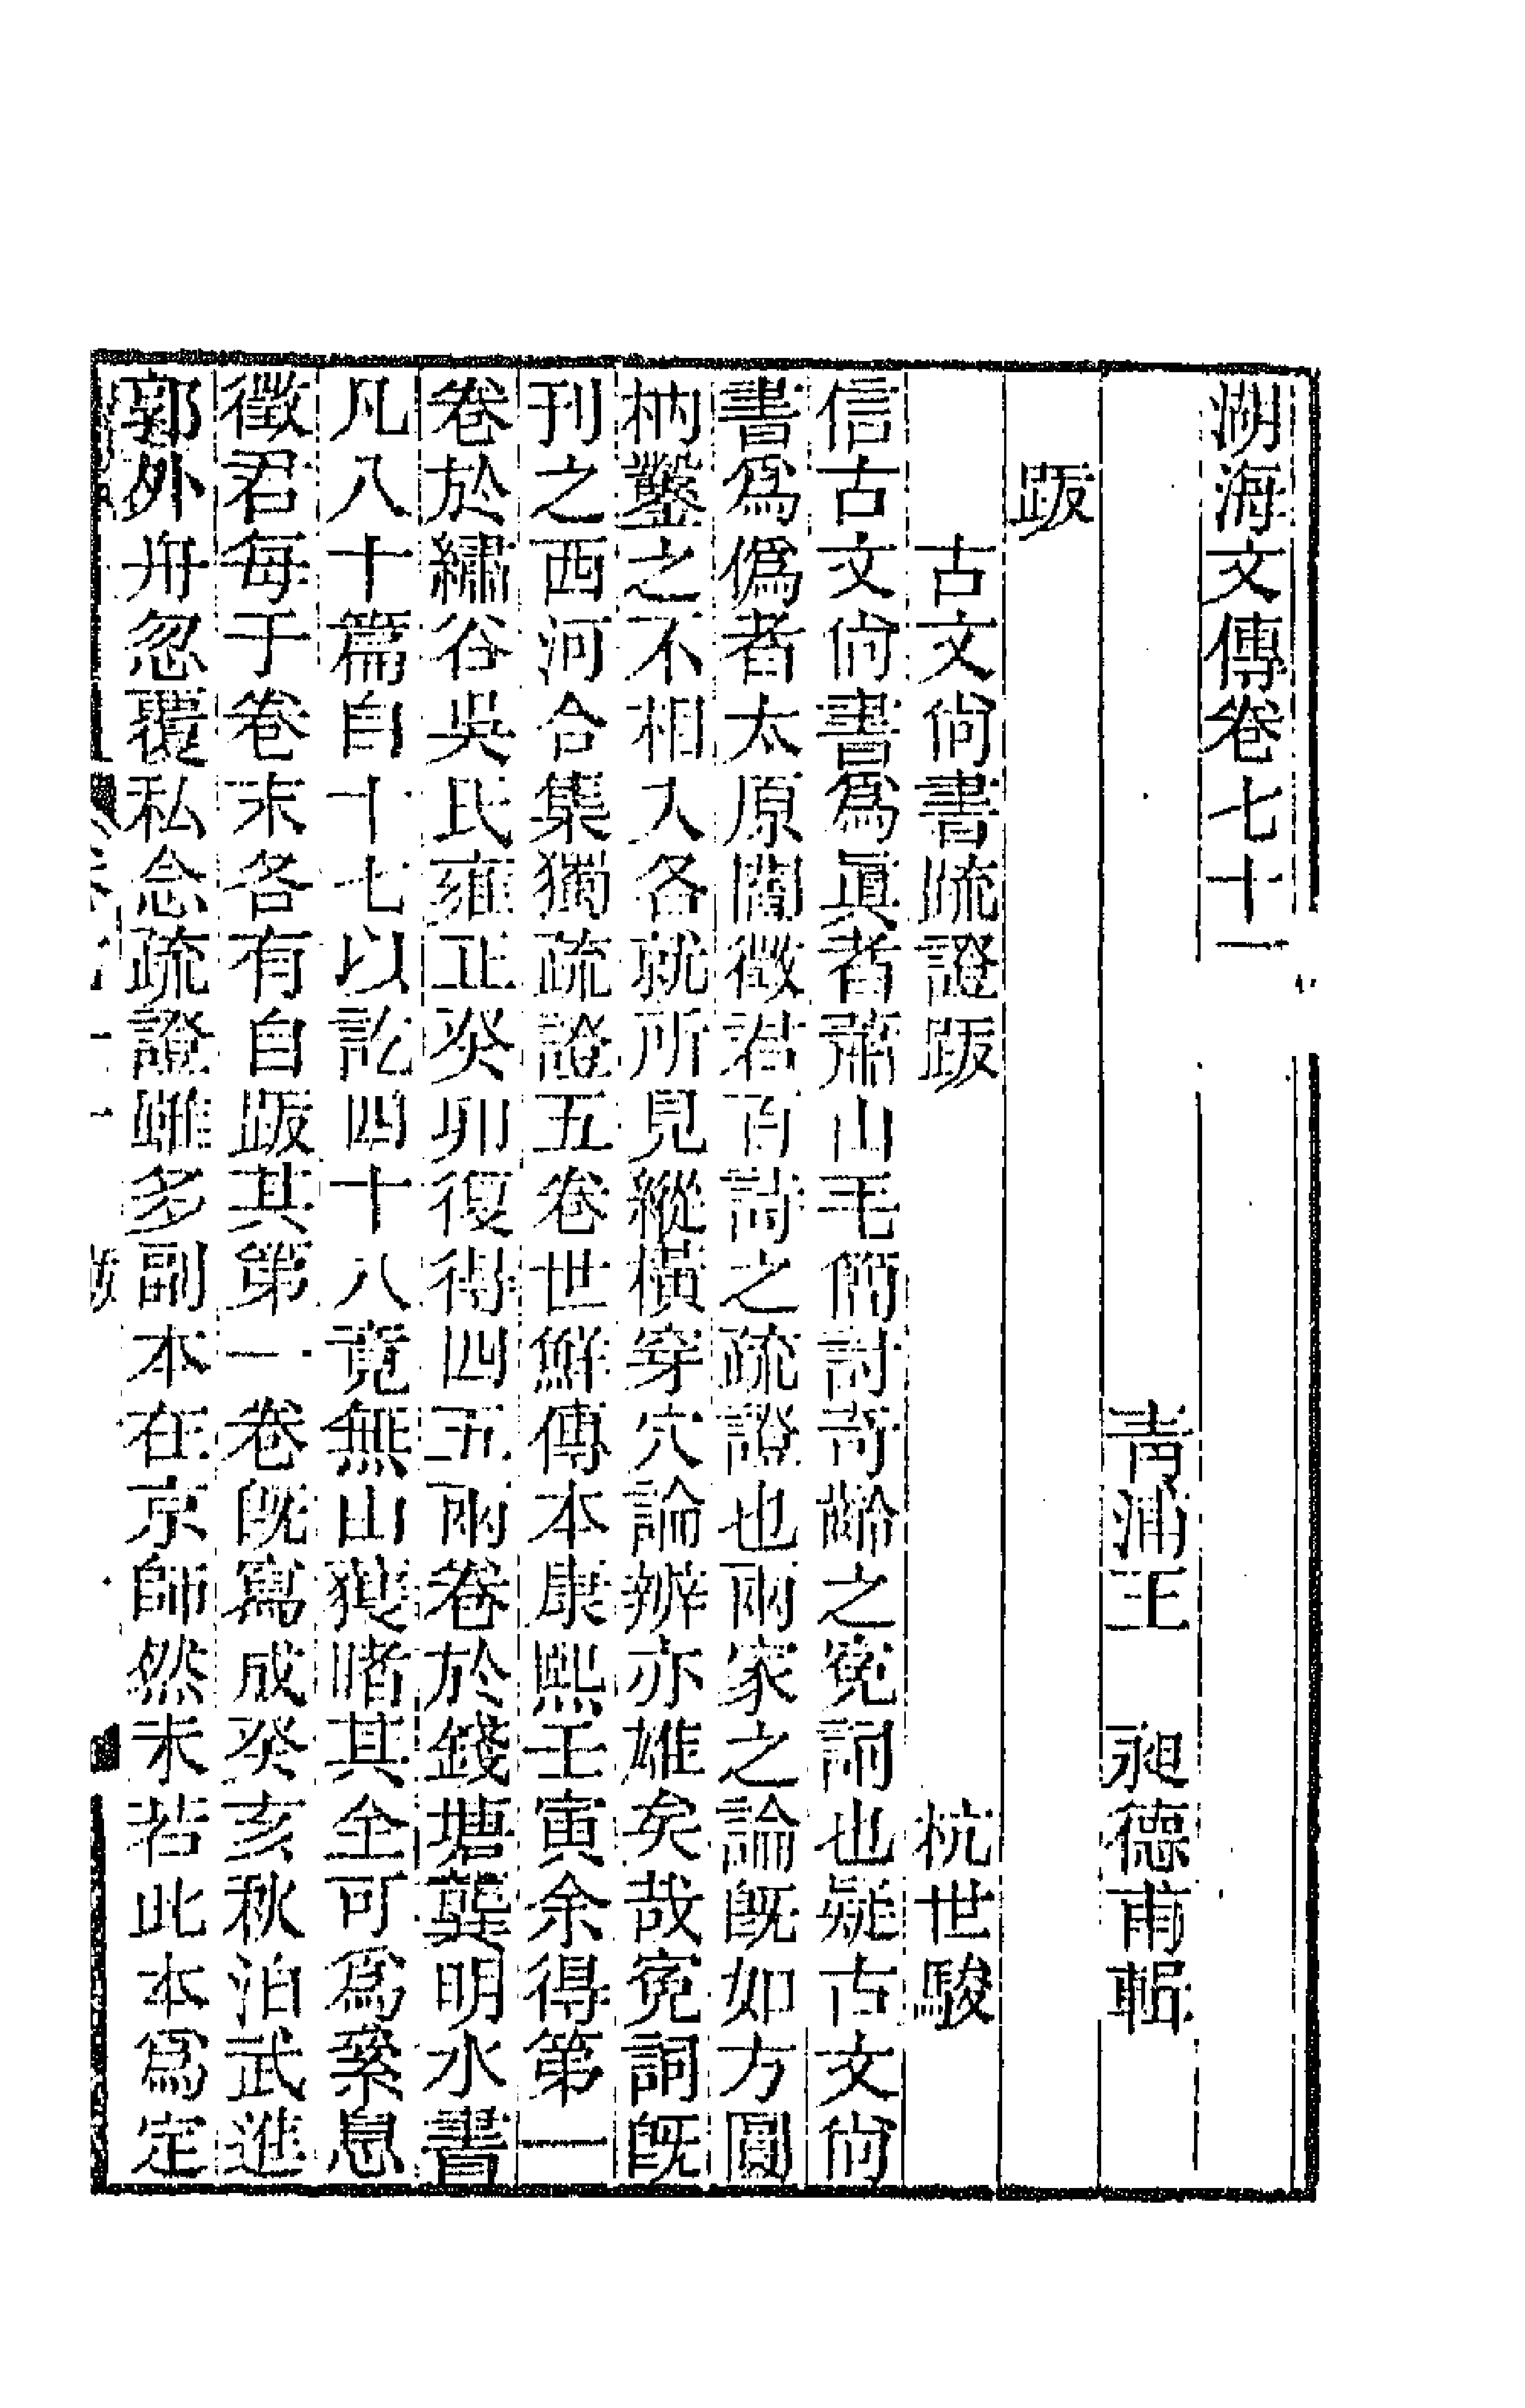 湖海文傳卷七十一
青浦王　昶德甫輯
跋
古文尙書疏證跋　杭世駿
信古文尙書爲眞者蕭山毛簡討奇齡之寃詞也疑古文尙
書爲僞者太原閻徵君百詩之疏證也兩家之論旣如方圓
枘鑿之不相入各就所見縱橫穿穴論辨亦雄矣哉寃詞旣
刊之西河合集獨疏證五卷世鮮傳本康熙壬寅余得第一
卷於繡谷吳氏雍正癸卯復得四五兩卷於錢塘龔明水書
凡八十篇自十七以訖四十八竟無山獲睹其全可爲絫息
徵君每于卷末各有自跋其第一卷旣寫成癸亥秋泊武進
郭外舟忽覆私念疏證雖多副本在京師然未若此本爲定